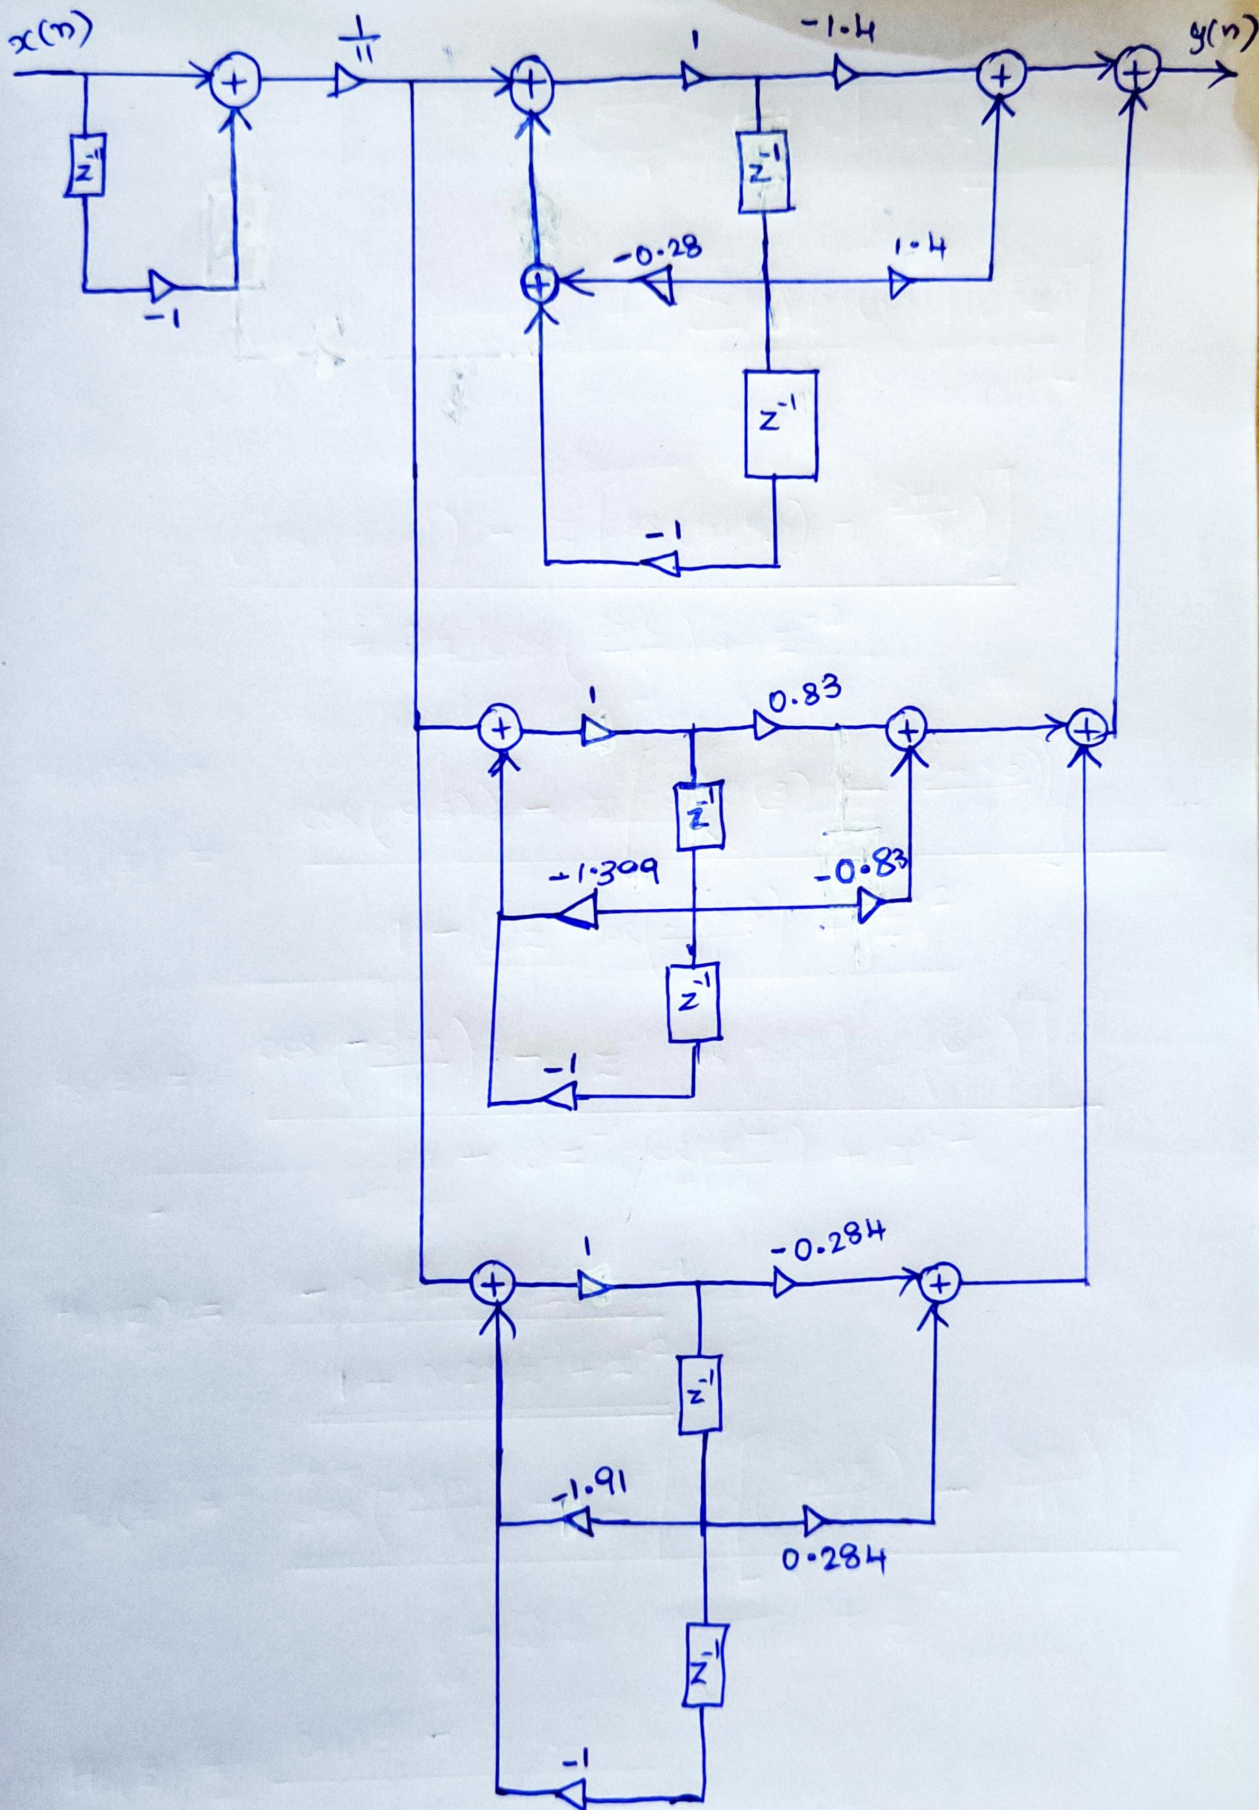 x(n)
1/11
1
-1.4
y(n)
+
+
+
+
z⁻¹¹
z⁻¹
-0.28
1.4
+
-1
z⁻¹
-1
1
0.83
+
+
+
z⁻¹
-1.399
-0.83
z⁻¹
-1
1
-0.284
+
+
z⁻¹
-1.91
0.284
z⁻¹
-1